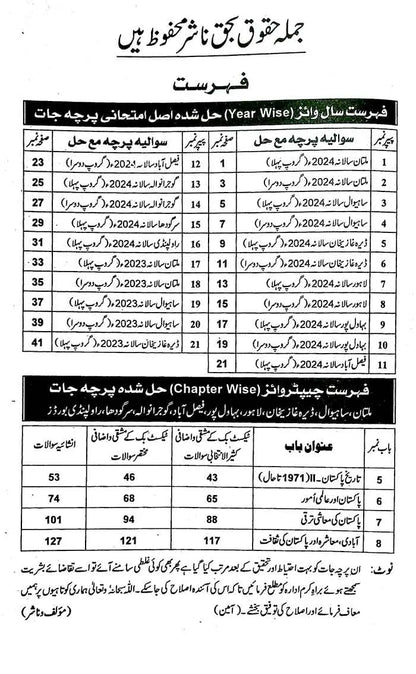 جملہ حقوق بحق ناشر محفوظ ہیں
فہرست
فہرست سال وائز (Year Wise) حل شدہ اصل امتحانی پرچہ جات
پیپر نمبر سوالیہ پرچہ مع حل صفحہ نمبر پیپر نمبر سوالیہ پرچہ مع حل صفحہ نمبر
1 ملتان سالانہ 2024ء (گروپ پہلا) 1 12 فیصل آباد سالانہ (گروپ دوسرا) 23
2 ملتان سالانہ 2024ء (گروپ دوسرا) 3 13 گوجرانوالہ سالانہ 2024ء (گروپ پہلا) 25
3 ساہیوال سالانہ 2024ء (گروپ پہلا) 5 14 گوجرانوالہ سالانہ 2024ء (گروپ دوسرا) 27
4 ساہیوال سالانہ 2024ء (گروپ دوسرا) 7 15 سرگودھا سالانہ 2024ء (گروپ پہلا) 29
5 ڈیرہ غازیخان سالانہ 2024ء (گروپ پہلا) 9 16 راولپنڈی سالانہ 2024ء (گروپ پہلا) 31
6 ڈیرہ غازیخان سالانہ 2024ء (گروپ دوسرا) 11 17 ملتان سالانہ 2023ء (گروپ پہلا) 33
7 لاہور سالانہ 2024ء (گروپ پہلا) 13 18 ملتان سالانہ 2023ء (گروپ دوسرا) 35
8 لاہور سالانہ 2024ء (گروپ دوسرا) 15 19 ساہیوال سالانہ 2023ء (گروپ پہلا) 37
9 بہاولپور سالانہ 2024ء (گروپ پہلا) 17 20 ساہیوال سالانہ 2023ء (گروپ دوسرا) 39
10 بہاولپور سالانہ 2024ء (گروپ دوسرا) 19 21 ڈیرہ غازیخان سالانہ 2023ء (گروپ پہلا) 41
11 فیصل آباد سالانہ 2024ء (گروپ پہلا) 21
فہرست چیپٹر وائز (Chapter Wise) حل شدہ پرچہ جات
ملتان، ساہیوال، ڈیرہ غازیخان، لاہور، بہاولپور، فیصل آباد، گوجرانوالہ، سرگودھا، راولپنڈی بورڈز
باب نمبر عنوان باب ٹیکسٹ بک کے مشقی و اضافی کثیر الانتخابی سوالات ٹیکسٹ بک کے مشقی و اضافی مختصر سوالات انشائیہ سوالات
5 تاریخ پاکستان ـ II (1971 تا حال) 43 46 53
6 پاکستان اور عالمی امور 65 68 74
7 پاکستان کی معاشی ترقی 88 94 101
8 آبادی، معاشرہ اور پاکستان کی ثقافت 117 121 127
نوٹ: ان پرچہ جات کو بہت احتیاط اور تحقیق کے بعد مرتب کیا گیا ہے پھر بھی کوئی غلطی سامنے آئے تو اسے تقاضائے بشریت
سمجھتے ہوئے براہِ کرم ادارہ کو مطلع فرمائیں تاکہ اس کی آئندہ اصلاح کی جا سکے۔ اللہ سبحانہٗ وتعالیٰ ہماری کوتاہیوں پر ہمیں
معاف فرمائے اور اصلاح کی توفیق بخشے۔ (آمین) (مؤلف و ناشر)